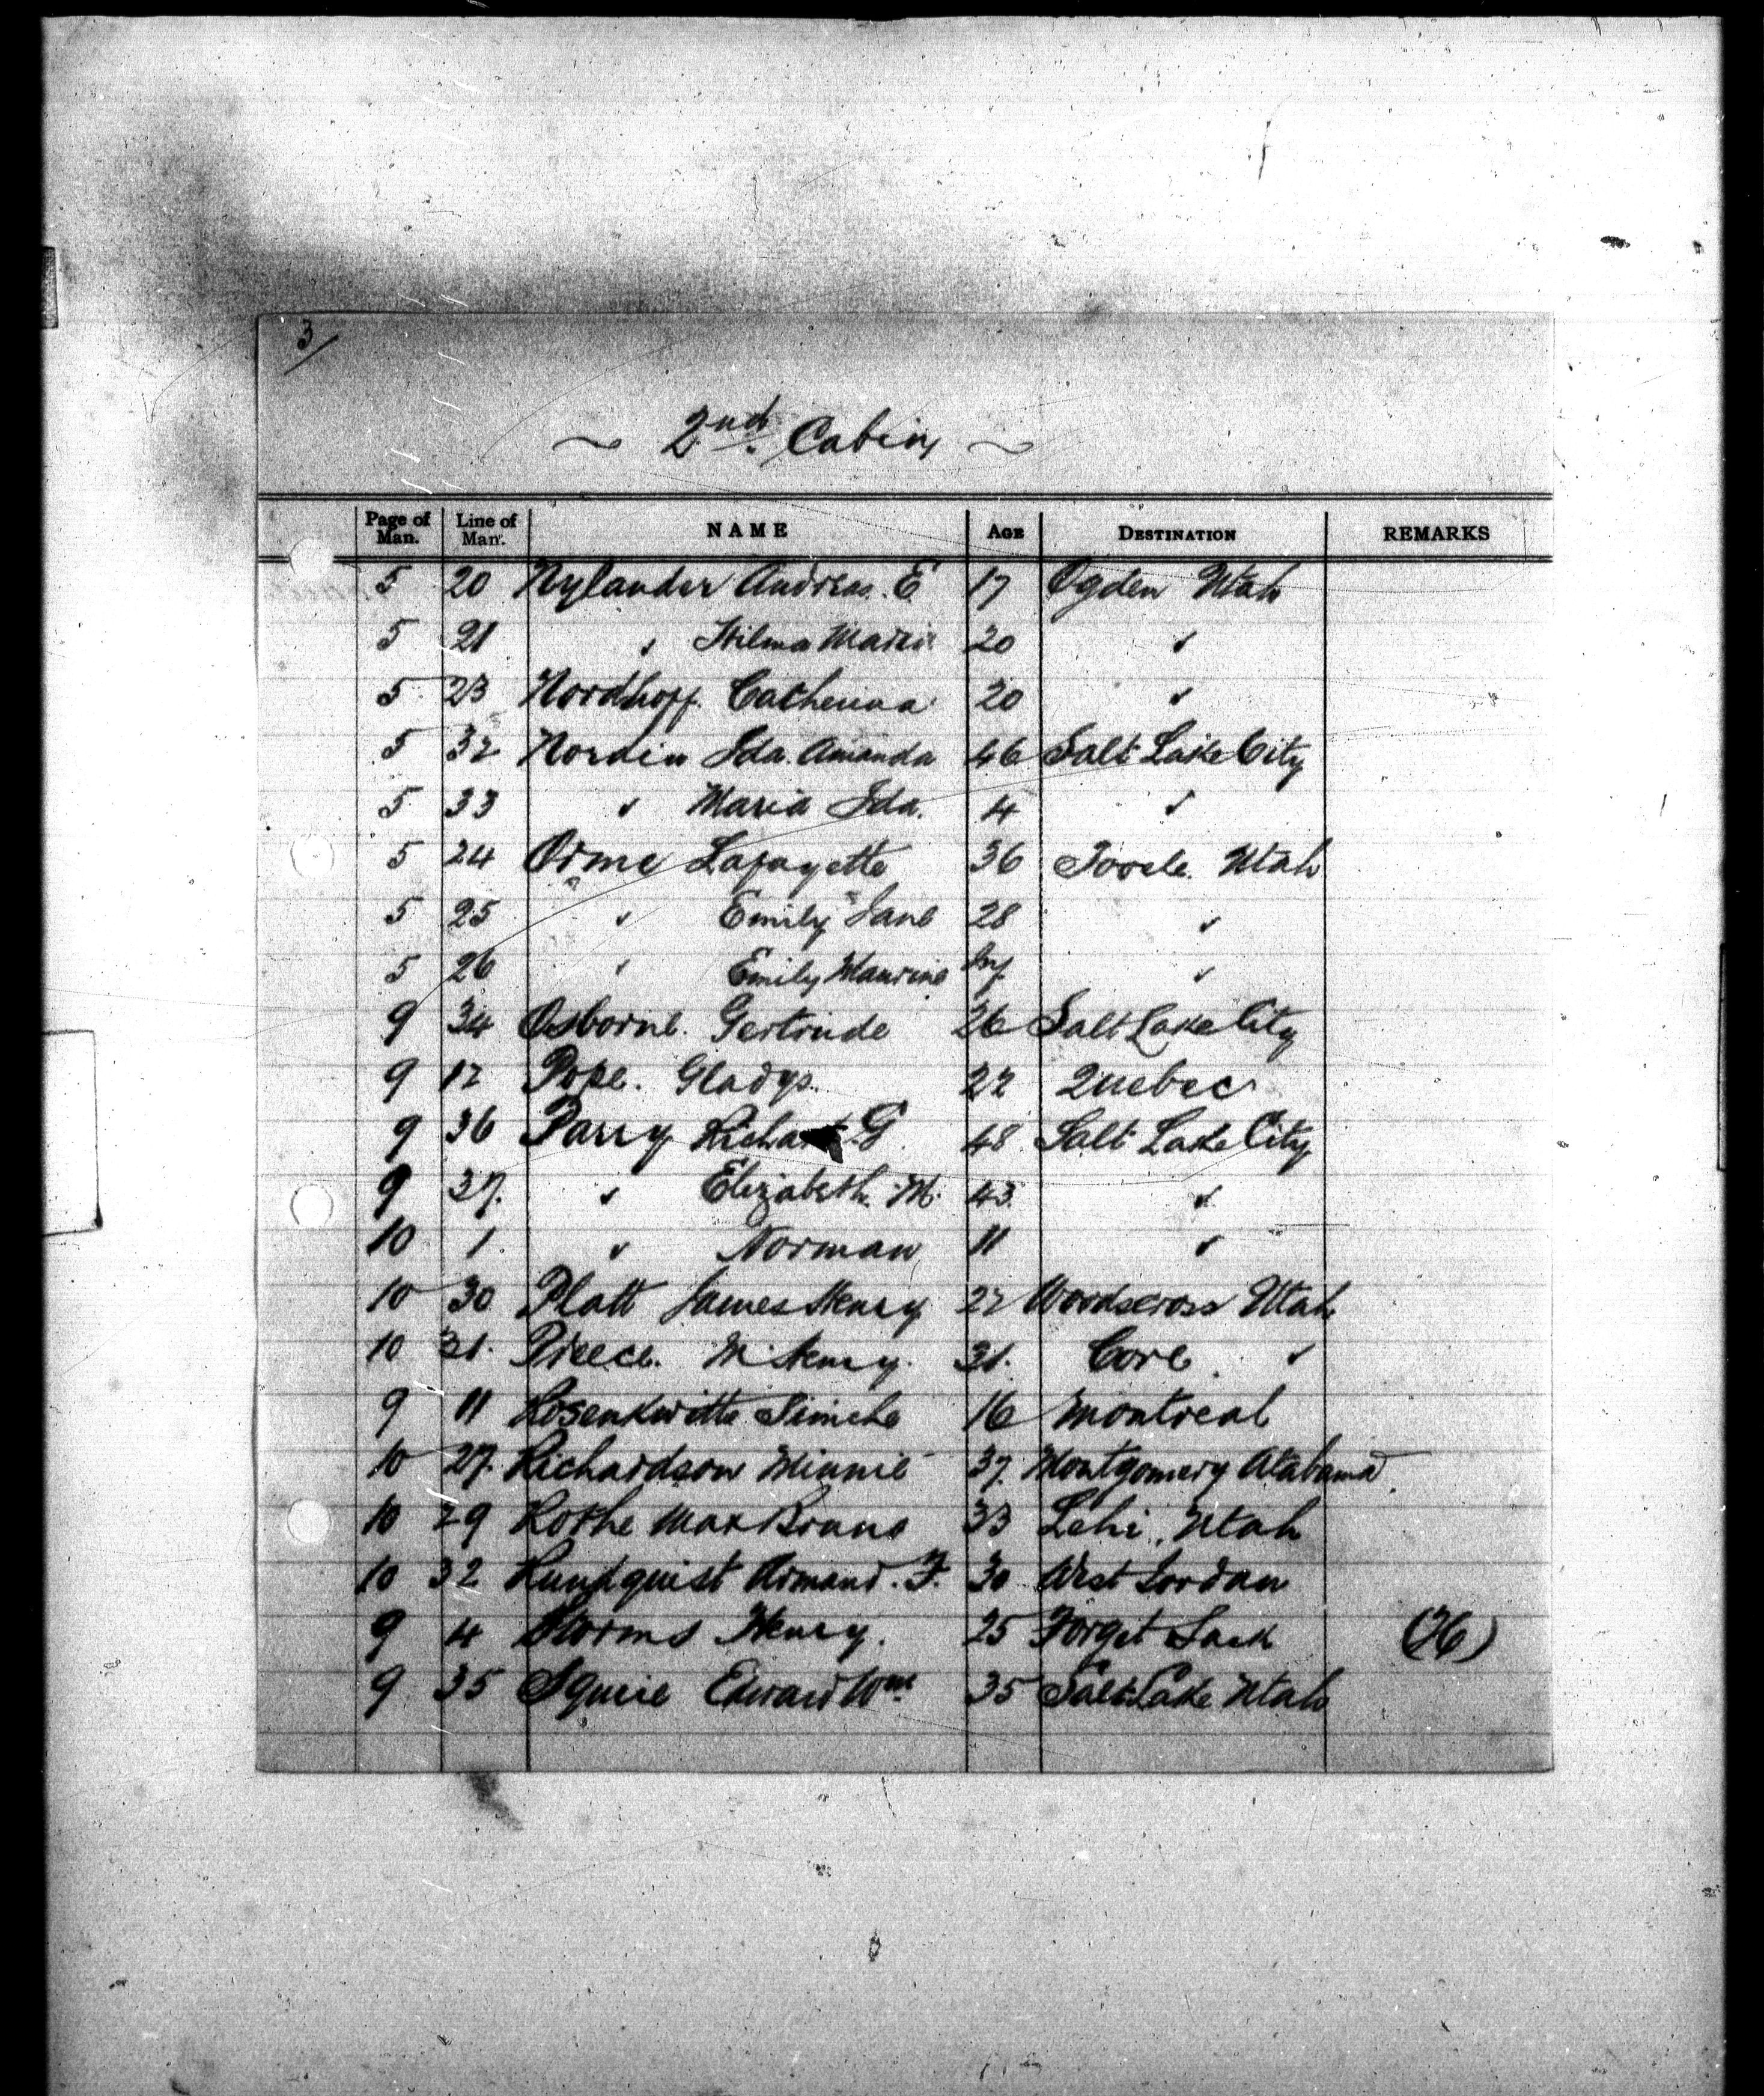 3/
~ 2nd. Cabin ~
Page of Man. Line of Man. NAME AGE DESTINATION REMARKS
5 20 Nylander Andreas. E 17 Ogden Utah
5 21 " Hilma Maria 20 "
5 23 Nordhoff. Catherina 20 "
5 32 Nordin Ida. Amanda 46 Salt Lake City
5 33 " Maria Ida. 4 "
5 24 Orme Lafayette 36 Tooele. Utah
5 25 " Emily Jane 28 "
5 26 " Emily Maurine Inf. "
9 34 Osborne. Gertrude 26 Salt Lake City
9 12 Pope. Gladys. 22 Quebec
9 36 Parry Richard G. 48 Salt Lake City
9 37. " Elizabeth. M. 43. "
10 1. " Norman 11 "
10 30 Platt James Henry 22 Woodscross Utah
10 31. Preece. M. Henry. 31. Cove "
9 11 Rosenkwitte Simche 16 Montreal
10 27. Richardson Minnie 37. Montgomery Alabama.
10 29 Rothe Max Bruno 33 Lehi, Utah
10 32 Rundquist Armand. F. 30 West Jordan
9 4 Storms Henry. 25 Forget Sask (26)
9 35 Squire Edward Wm. 35 Salt Lake Utah